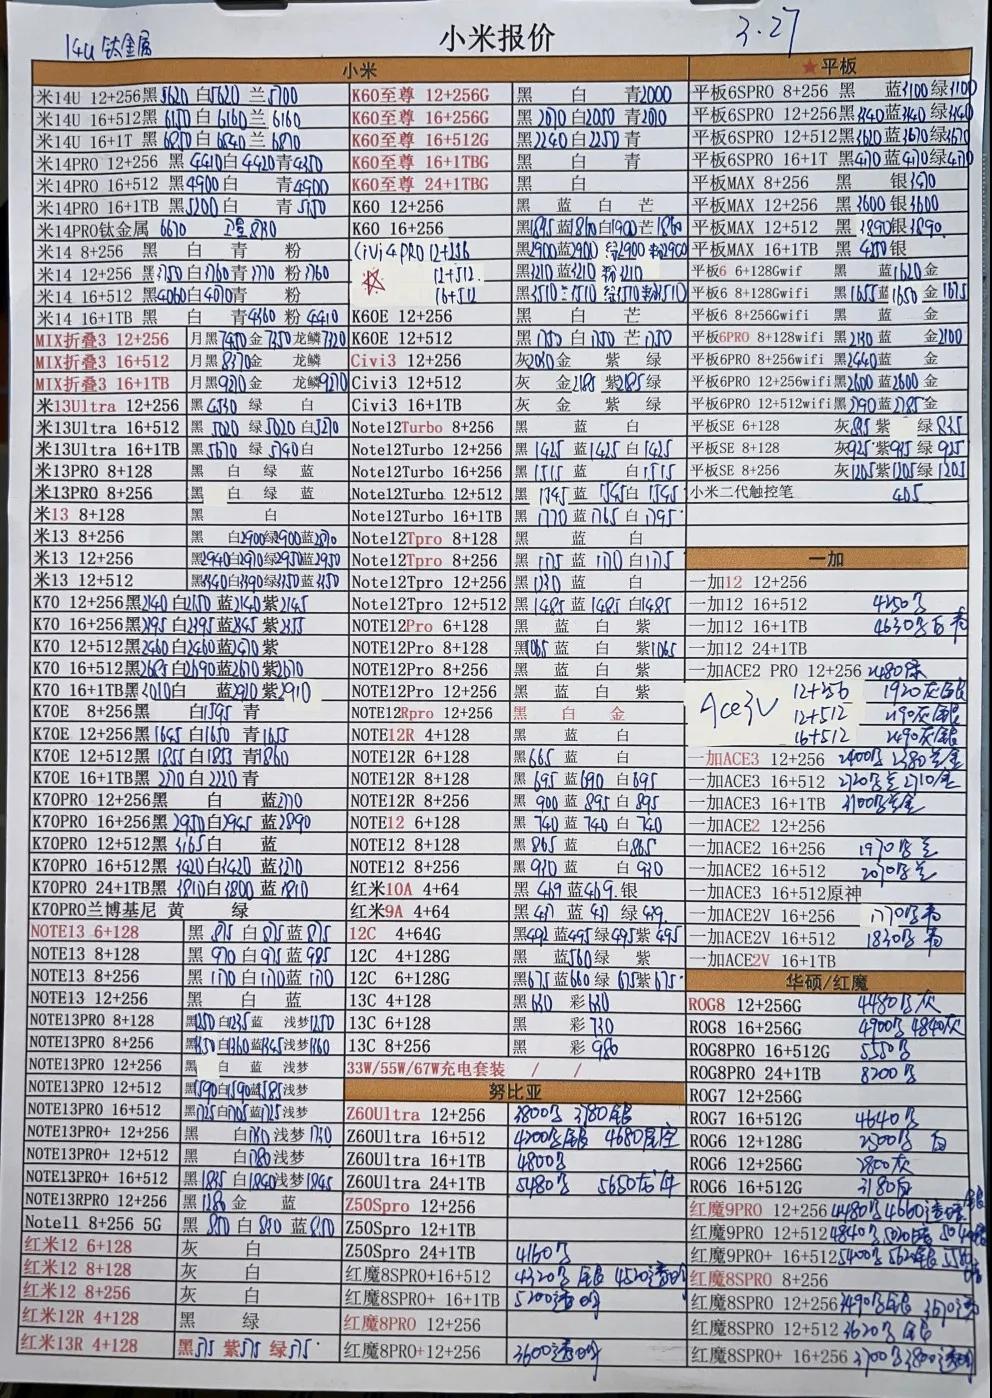 14U 钛金属
小米报价
3.27
小米
米14U 12+256黑5620 白5620 兰5700
米14U 16+512黑6150 白6160 兰6160
米14U 16+1T 黑6850白6840兰6870
米14PRO 12+256 黑4410白4420青4350
米14PRO 16+512 黑4900白 青4900
米14PRO 16+1TB 黑5200白 青5150
米14PRO钛金属 6670
米14 8+256 黑 白 青 粉
米14 12+256 黑3750白3760青3770 粉3760
米14 16+512 黑4060白4070青 粉
米14 16+1TB 黑 白 青4360 粉4410
MIX折叠3 12+256 月黑7450金7350龙鳞7320
MIX折叠3 16+512 月黑8370金 龙鳞
MIX折叠3 16+1TB 月黑9270金 龙鳞9270
米13Ultra 12+256 黑4530 绿 白
米13Ultra 16+512 黑5020 绿5020 白5270
米13Ultra 16+1TB 黑5670 绿5740白
米13PRO 8+128 黑 白 绿 蓝
米13PRO 8+256 白 绿 蓝
米13 8+128 黑 白
米13 8+256 黑 白2900绿2900蓝2870
米13 12+256 黑2940白2970绿2950蓝2950
米13 12+512 黑3340白3390绿3350蓝3350
K70 12+256黑2140白2150蓝2140紫2145
K70 16+256黑2395白2395蓝2345紫2355
K70 12+512黑2460白2460蓝2470紫
K70 16+512黑2685白2690蓝2670紫2670
K70 16+1TB黑3010白 蓝2910紫2910
K70E 8+256黑 白1595 青
K70E 12+256黑1645白1650 青1655
K70E 12+512黑1855白1855 青1860
K70E 16+1TB黑2270白2220青
K70PRO 12+256黑 白 蓝2770
K70PRO 16+256黑2950白2945 蓝2890
K70PRO 12+512黑3165白 蓝
K70PRO 16+512黑3420白3420 蓝3270
K70PRO 24+1TB黑3810白3800 蓝3810
K70PRO兰博基尼 黄 绿
NOTE13 6+128 黑875白875蓝875
NOTE13 8+128 黑970白975蓝985
NOTE13 8+256 黑1170白1170蓝1170
NOTE13 12+256 黑 白 蓝
NOTE13PRO 8+128 黑1250白1235蓝 浅梦1250
NOTE13PRO 8+256 黑1350白1360蓝1345浅梦1360
NOTE13PRO 12+256 白 蓝 浅梦
NOTE13PRO 12+512 黑1590白1590蓝1585浅梦
NOTE13PRO 16+512 黑1725白1705蓝1725浅梦
NOTE13PRO+ 12+256 黑 白1730浅梦1730
NOTE13PRO+ 12+512 黑 白1780浅梦
NOTE13PRO+ 16+512 黑1835白1840浅梦1845
NOTE13RPRO 12+256 黑1280金 蓝
Note11 8+256 5G 黑850白850蓝850
红米12 6+128 灰 白
红米12 8+128 灰 白
红米12 8+256 灰 白
红米12R 4+128 黑 绿
红米13R 4+128 黑575 紫575 绿575
K60至尊 12+256G 黑 白 青2000
K60至尊 16+256G 黑2070白2050青2010
K60至尊 16+512G 黑2240白2250青
K60至尊 16+1TBG 黑 白 青
K60至尊 24+1TBG 黑 白
K60 12+256 黑 蓝 白 芒
K60 16+256 黑1895蓝1860白1900芒1860
CiVi4 PRO 12+256 黑2900蓝2900 2900粉2900
12+512 黑3210蓝3210 粉3210
16+512 黑3510兰3510 3510粉3510
K60E 12+256 黑 白 芒
K60E 12+512 黑1750白1750芒1750
Civi3 12+256 灰2030金 紫 绿
Civi3 12+512 灰 金2185 紫2185绿
Civi3 16+1TB 灰 金 紫 绿
Note12Turbo 8+256 黑 蓝 白
Note12Turbo 12+256 黑1425蓝1425白1425
Note12Turbo 16+256 黑1515 蓝 白1515
Note12Turbo 12+512 黑1545蓝1545白1545
Note12Turbo 16+1TB 黑1770蓝1765白1795
Note12Tpro 8+128 黑 蓝 白
Note12Tpro 8+256 黑1175蓝1170白1175
Note12Tpro 12+256 黑1230蓝 白
Note12Tpro 12+512 黑1485蓝1485白1485
NOTE12Pro 6+128 黑 蓝 白 紫
NOTE12Pro 8+128 黑1065蓝 白 紫1065
NOTE12Pro 8+256 黑 蓝 白 紫
NOTE12Pro 12+256 黑 蓝 白 紫
NOTE12Rpro 12+256 黑 白 金
NOTE12R 4+128 黑 蓝 白
NOTE12R 6+128 黑665 蓝 白
NOTE12R 8+128 黑695蓝690白695
NOTE12R 8+256 黑900蓝895白895
NOTE12 6+128 黑740蓝740白740
NOTE12 8+128 黑865 蓝 白865
NOTE12 8+256 黑930 蓝 白930
红米10A 4+64 黑469蓝469.银
红米9A 4+64 黑437 蓝437 绿439.
12C 4+64G 黑492蓝495绿495紫495
12C 4+128G 黑 蓝560绿 紫
12C 6+128G 黑675蓝660绿675紫675
13C 4+128 黑630 彩630
13C 6+128 黑 彩730
13C 8+256 黑 彩980
33W/55W/67W充电套装 / /
努比亚
Z60Ultra 12+256 3800黑 3780银
Z60Ultra 16+512 4200黑银 4680星空
Z60Ultra 16+1TB 4800黑
Z60Ultra 24+1TB 5480黑
Z50Spro 12+256
Z50Spro 12+1TB
Z50Spro 24+1TB 4160黑
红魔8SPRO+16+512 4320黑 银 4520透明
红魔8SPRO+ 16+1TB 5200透明
红魔8PRO 12+256
红魔8PRO+12+256 3600透明
★平板
平板6SPRO 8+256 黑 蓝3100绿3100
平板6SPRO 12+256黑3340蓝3340绿3340
平板6SPRO 12+512黑3620蓝3670绿3670
平板6SPRO 16+1T 黑4170蓝4170绿4170
平板MAX 8+256 黑 银3470
平板MAX 12+256 黑3600银3600
平板MAX 12+512 黑3890银3890.
平板MAX 16+1TB 黑4250银
平板6 6+128Gwif 黑 蓝1620金
平板6 8+128Gwifi 黑1655蓝1650 金1675
平板6 8+256Gwifi 黑 蓝 金
平板6PRO 8+128wifi 黑2130蓝 金2100
平板6PRO 8+256wifi 黑2440蓝 金
平板6PRO 12+256wifi黑2600蓝2600 金
平板6PRO 12+512wifi黑2790蓝2785金
平板SE 6+128 灰835紫 绿835
平板SE 8+128 灰925紫945绿925
平板SE 8+256 灰1205紫1205绿1205
小米二代触控笔 405
一加
一加12 12+256
一加12 16+512 4250黑
一加12 16+1TB 4630黑白
一加12 24+1TB
一加ACE2 PRO 12+256 2480灰
Ace3V 12+256 1920灰银
12+512 2190灰银
16+512 2490灰银
一加ACE3 12+256 2400黑 2380兰金
一加ACE3 16+512 2720黑兰 2710金
一加ACE3 16+1TB 3100黑兰金
一加ACE2 12+256
一加ACE2 16+256 1970黑兰
一加ACE2 16+512 2070黑兰
一加ACE3 16+512原神
一加ACE2V 16+256 1770黑青
一加ACE2V 16+512 1830黑 青
一加ACE2V 16+1TB
华硕/红魔
ROG8 12+256G 4480黑灰
ROG8 16+256G 4900黑 4840灰
ROG8PRO 16+512G 5550黑
ROG8PRO 24+1TB 8200黑
ROG7 12+256G
ROG7 16+512G 4640黑
ROG6 12+128G 2500黑 白
ROG6 12+256G 2800灰
ROG6 16+512G 3180白
红魔9PRO 12+256 4480黑4660透
红魔9PRO 12+512 4840黑
红魔9PRO+ 16+512 5400黑
红魔8SPRO 8+256
红魔8SPRO 12+256 3490黑银 3670透
红魔8SPRO 12+512 3620黑 银
红魔8SPRO+ 16+256 3700黑3800透明